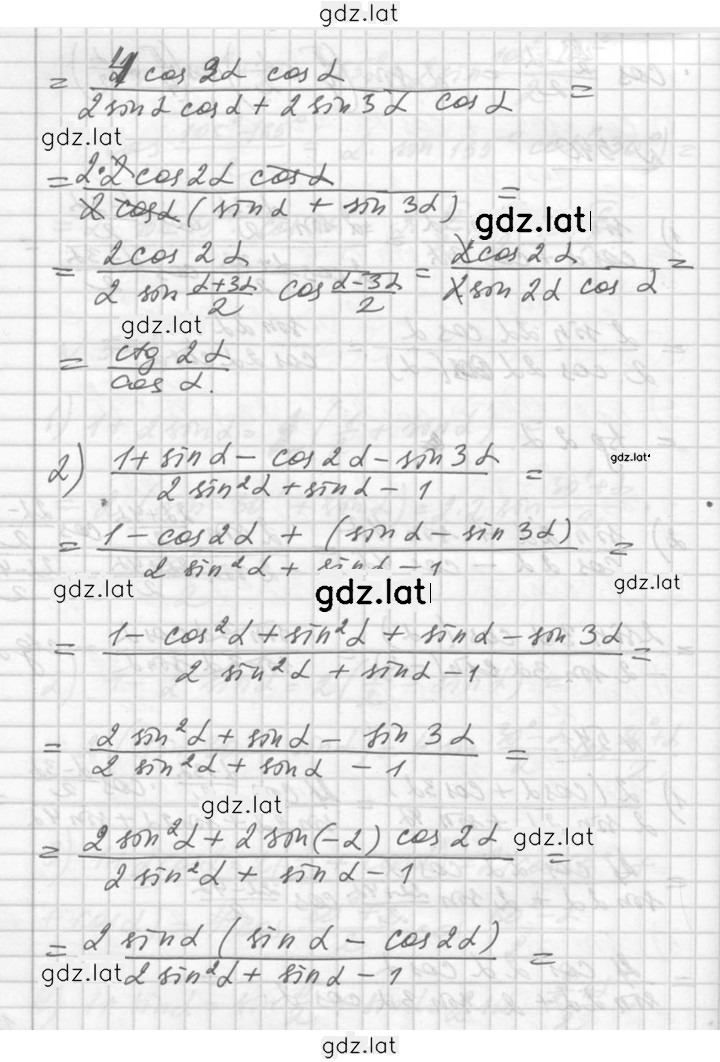 gdz.lat
= 4 cos 2α cos α / 2 sin α cos α + 2 sin 3α cos α =
gdz.lat
= 2·2 cos 2α cos α / 2 cos α (sin α + sin 3α) =
gdz.lat
= 2 cos 2α / 2 sin α+3α/2 cos α-3α/2 = 2 cos 2α / 2 sin 2α cos α =
gdz.lat
= ctg 2α / cos α.
2) 1 + sin α - cos 2α - sin 3α / 2 sin²α + sin α - 1 =
gdz.lat
= 1 - cos 2α + (sin α - sin 3α) / 2 sin²α + sin α - 1 =
gdz.lat gdz.lat gdz.lat
= 1 - cos²α + sin²α + sin α - sin 3α / 2 sin²α + sin α - 1 =
= 2 sin²α + sin α - sin 3α / 2 sin²α + sin α - 1 =
gdz.lat
= 2 sin²α + 2 sin(-2) cos 2α / 2 sin²α + sin α - 1 =
gdz.lat
= 2 sin α (sin α - cos 2α) / 2 sin²α + sin α - 1 =
gdz.lat
gdz.lat